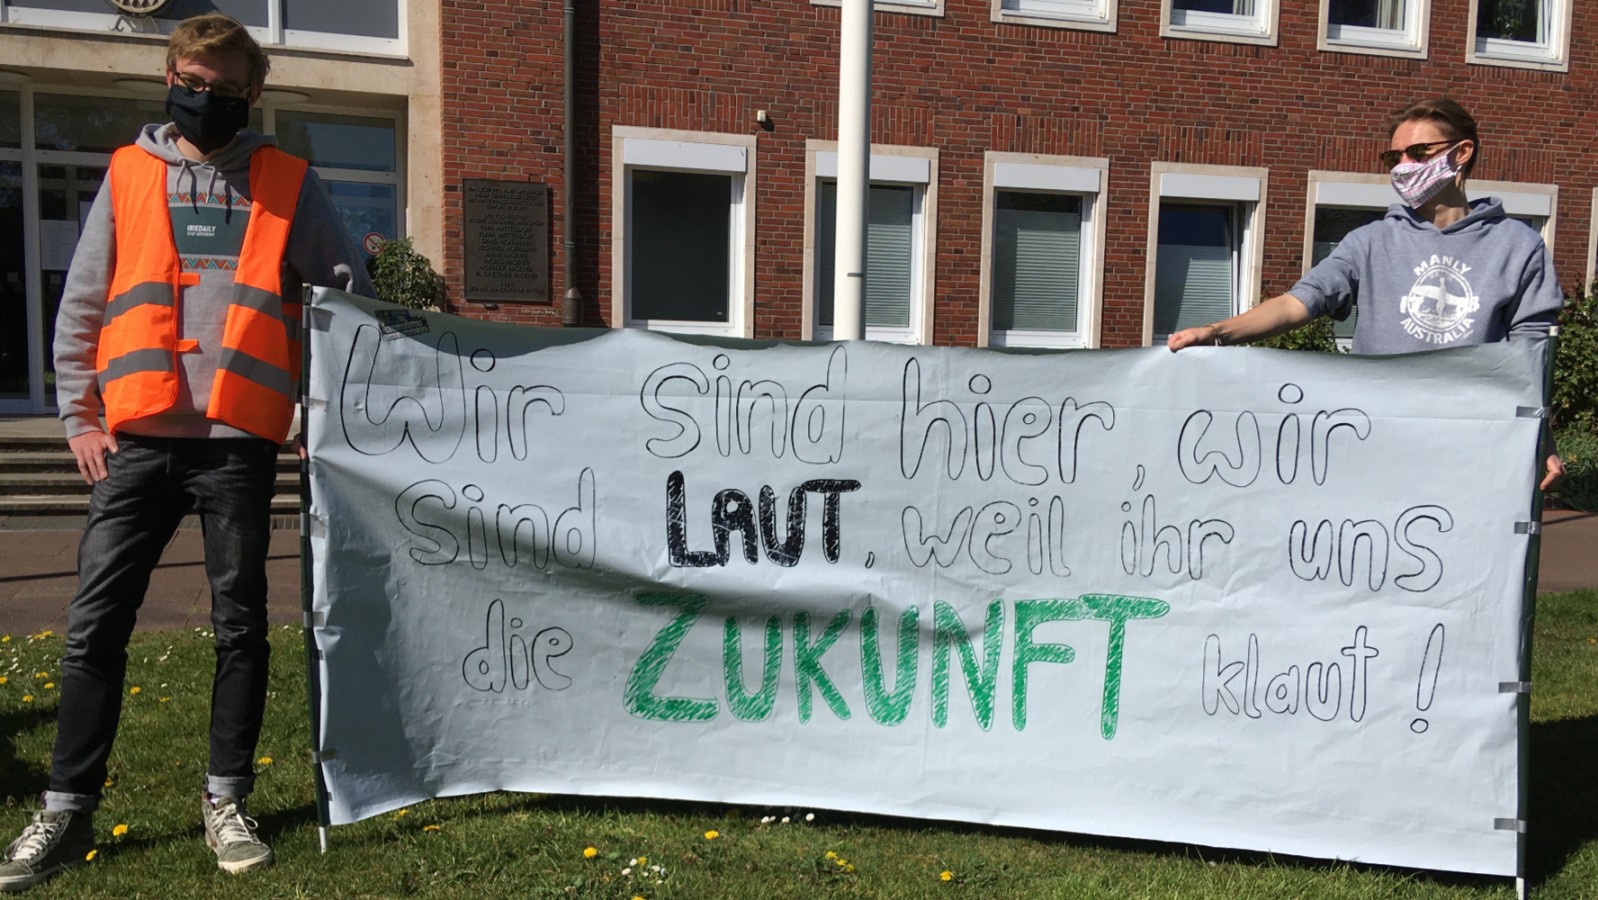 Wir sind hier, wir
sind LAUT, weil ihr uns
die ZUKUNFT klaut!
IRIEDAILY
MANLY
AUSTRALIA